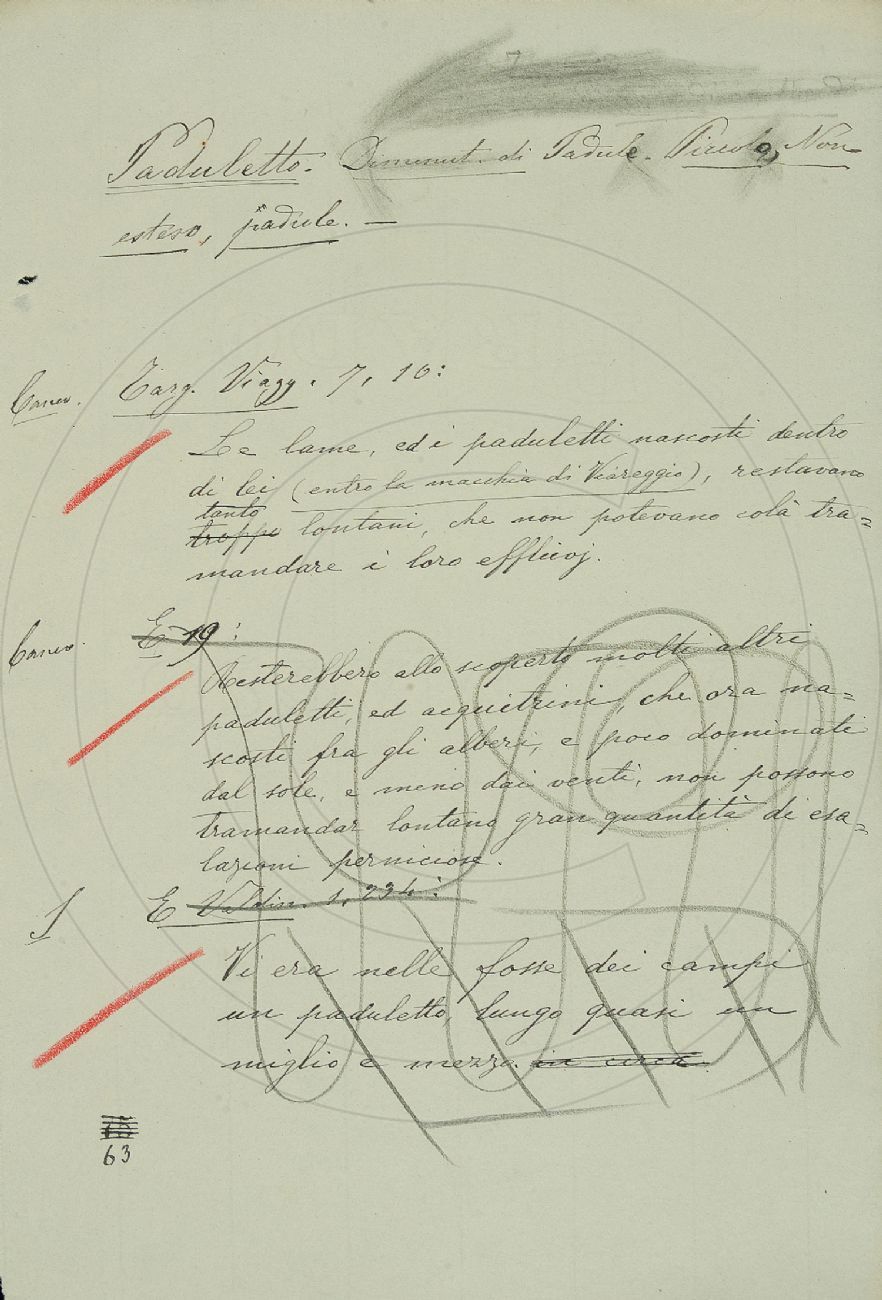 Paduletto. Diminut. di Padule. Piccolo, Non
esteso, padule. —
Targ. Viagg. 7, 10:
Le lame, ed i paduletti nascosti dentro
di lei (entro la macchia di Viareggio), restavano
tanto
troppo lontani, che non potevano colà tra=
mandare i loro effluvj.
E 19:
Resterebbero allo scoperto molti altri
paduletti, ed acquitrini, che ora na=
scosti fra gli alberi, e poco dominati
dal sole, e meno dai venti, non possono
tramandar lontano gran quantità di esa=
lazioni perniciose.
E Valdin. 1, 234:
Vi era nelle fosse dei campi
un paduletto, lungo quasi un
miglio e mezzo. in circa.
63